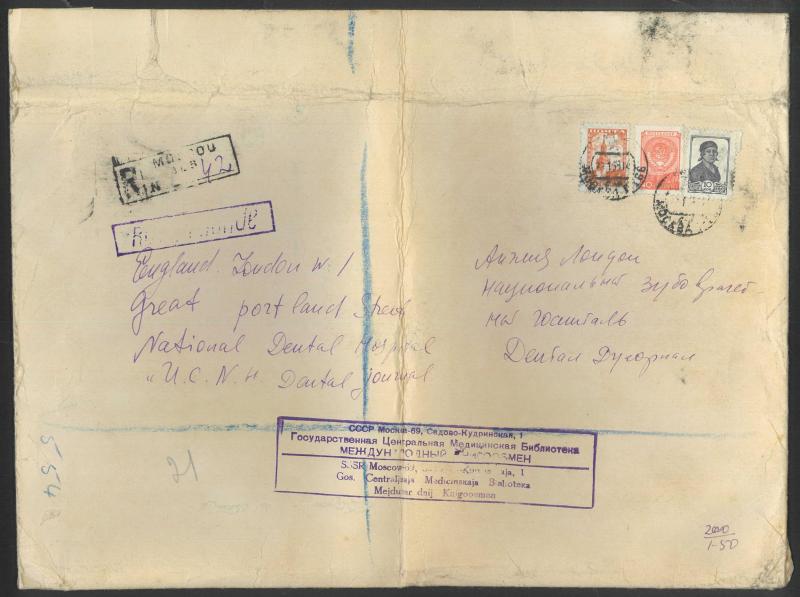 MOSCOU
R
N 42
England. London W. 1
Great portland Street
National Dental Hospital
"U.C.N.H Dental journal
Англия Лондон
национальный зубоврачеб-
ный госпиталь
Дентал
МОСКВА
СССР Москва-69, Садово-Кудринская, 1
Государственная Центральная Медицинская Библиотека
МЕЖДУН ОДНЫЙ КНИГООБМЕН
SSSR Moscow-69, aja, 1
Gos. Centralnaja Medicinskaja Biblioteka
Mejdunar dnij Knigoobmen
554
21
2000
1-50